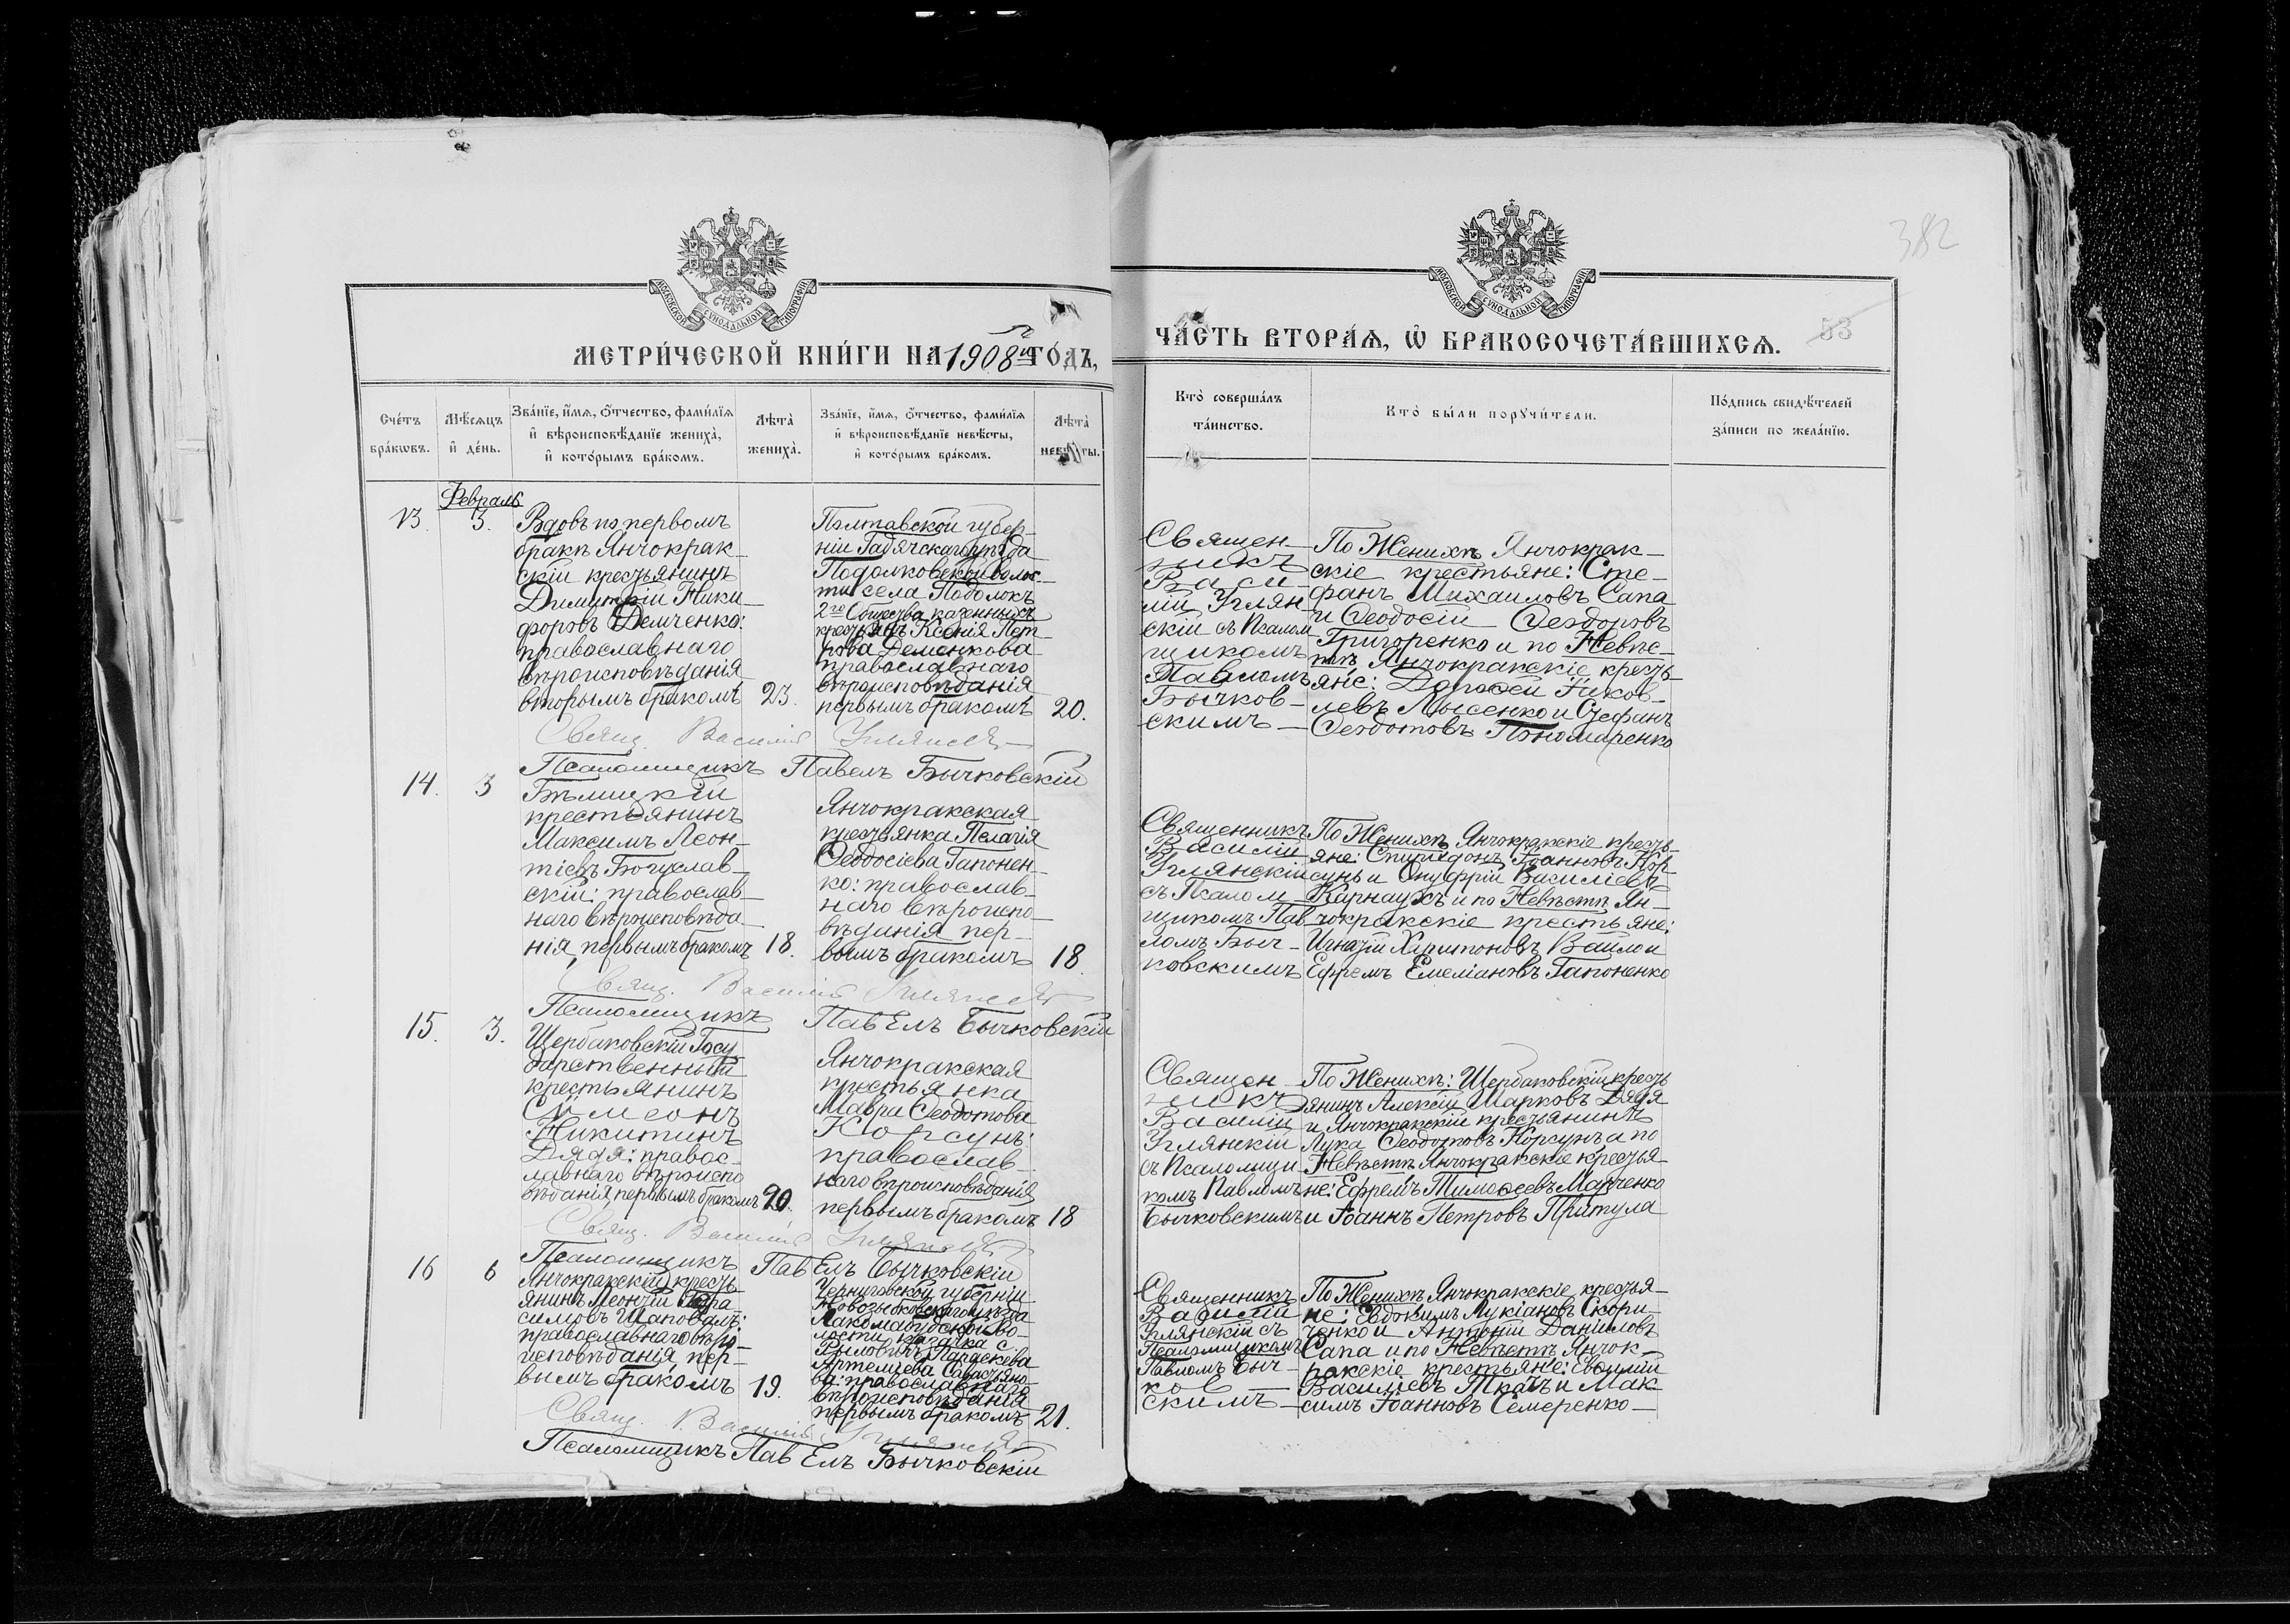 382
53
МОСКОВСКОЙ СѴНОДАЛЬНОЙ ТИПОГРАФІИ
МОСКОВСКОЙ СѴНОДАЛЬНОЙ ТИПОГРАФІИ
МЕТРИ́ЧЕСКОЙ КНИ́ГИ НА 1908 й ГО́ДЪ,
ЧА́СТЬ ВТОРА́Я, Ѽ БРАКОСОЧЕТА́ВШИХСЯ.
Сче́тъ бра́кωвъ.
Мѣ́сяцъ и де́нь.
Зва́нїе, и́мя, ѻ́тчество, фами́лїя и҆ вѣроисповѣ́данїе жениха̀, и҆ кото́рымъ бра́комъ.
Лѣта̀ жениха̀.
Зва́нїе, и́мя, ѻ́тчество, фами́лїя и҆ вѣроисповѣ́данїе невѣ́сты, и҆ кото́рымъ бра́комъ.
Лѣта̀ невѣ́сты.
Кто̀ соверша́лъ та́инство.
Кто̀ бы́ли порꙋчи́тели.
По́дпись свидѣ́телей за́писи по жела́нїю.
Февраль
13.
3.
Вдовъ по первомъ
бракѣ Янчокрак-
скій крестьянинъ
Димитрій Ники-
форовъ Демченко:
православнаго
вѣроисповѣданія
вторымъ бракомъ
23.
Полтавской губер-
ніи Гадячскаго уѣзда
Подолковской волос-
ти села Подолокъ
2го Общества казенныхъ
крестьянъ Ксенія Пет-
рова Деменкова
православнаго
вѣроисповѣданія
первымъ бракомъ
20.
Священ-
никъ
Васи-
лій Углян-
скій съ Псалом-
щикомъ
Павломъ
Бычков-
скимъ
По Женихѣ Янчокрак-
скіе крестьяне: Сте-
фанъ Михаиловъ Сапа
и Ѳеодосій Ѳеодоровъ
Григоренко и по Невѣс-
тѣ Янчокракскіе кресть-
яне: Дороѳей Яков-
левъ Лысенко и Стефанъ
Ѳеодотовъ Пономаренко
Свящ. Василій Углянскій
Псаломщикъ Павелъ Бычковскій
14.
3
Бѣлицкій
крестьянинъ
Максимъ Леон-
тіевъ Богуслав-
скій: православ-
наго вѣроисповѣда-
нія, первымъ бракомъ
18.
Янчокракская
крестьянка Пелагія
Ѳеодосіева Гапонен-
ко: православ-
наго вѣроиспо-
вѣданія пер-
вымъ бракомъ
18.
Священникъ
Василій
Углянскій
съ Псалом-
щикомъ Пав-
ломъ Быч-
ковскимъ
По Женихѣ Янчокракскіе кресть-
яне: Спиридонъ Іоанновъ Кор-
сунь и Онуфрій Василіевъ
Карнаухъ и по Невѣстѣ Ян-
чокракскіе крестьяне:
Игнатій Харитоновъ Вайло и
Ефремъ Емеліановъ Гапоненко
Свящ. Василій Углянскій
Псаломщикъ Павелъ Бычковскій
15.
3.
Щербаковскій Госу-
дарственный
крестьянинъ
Сѵмеонъ
Никитинъ
Дядя: правос-
лавнаго вѣроиспо-
вѣданія, первымъ бракомъ
20.
Янчокракская
крестьянка
Мавра Ѳеодотова
Корсунь:
православ-
наго вѣроисповѣданія
первымъ бракомъ
18
Священ-
никъ
Василій
Углянскій
съ Псаломщи-
комъ Павломъ
Бычковскимъ
По Женихѣ: Щербаковскій кресть-
янинъ Алексій Марковъ Дядя
и Янчокракскій крестьянинъ
Лука Ѳеодотовъ Корсунь а по
Невѣстѣ Янчокракскіе крестья-
не: Ефремъ Тимоѳеевъ Марченко
и Іоаннъ Петровъ Притула
Свящ. Василій Углянскій
Псаломщикъ Павелъ Бычковскій
16
6
Янчокракскій кресть-
янинъ Леонтій Гера-
симовъ Шаповалъ:
православнаго вѣро-
исповѣданія, пер-
вымъ бракомъ
19.
Черниговской губерніи
Новозыбковскаго уѣзда
Лакомабудской Во-
лости, казачка с.
Параскева
Артеміева
ва: православнаго
вѣроисповѣданія
первымъ бракомъ
21.
Священникъ
Василій
Углянскій съ
Псаломщикомъ
Павломъ Быч-
ков-
скимъ
По Женихѣ Янчокракскіе крестья-
не: Евдокимъ Лукіановъ Скори-
ченко и Антоній Даніиловъ
Сапа и по Невѣстѣ Янчок-
ракскіе крестьяне: Евѳимій
Василіевъ Ткачъ и Мак-
симъ Іоанновъ Семеренко
Свящ. Василій Углянскій
Псаломщикъ Павелъ Бычковскій